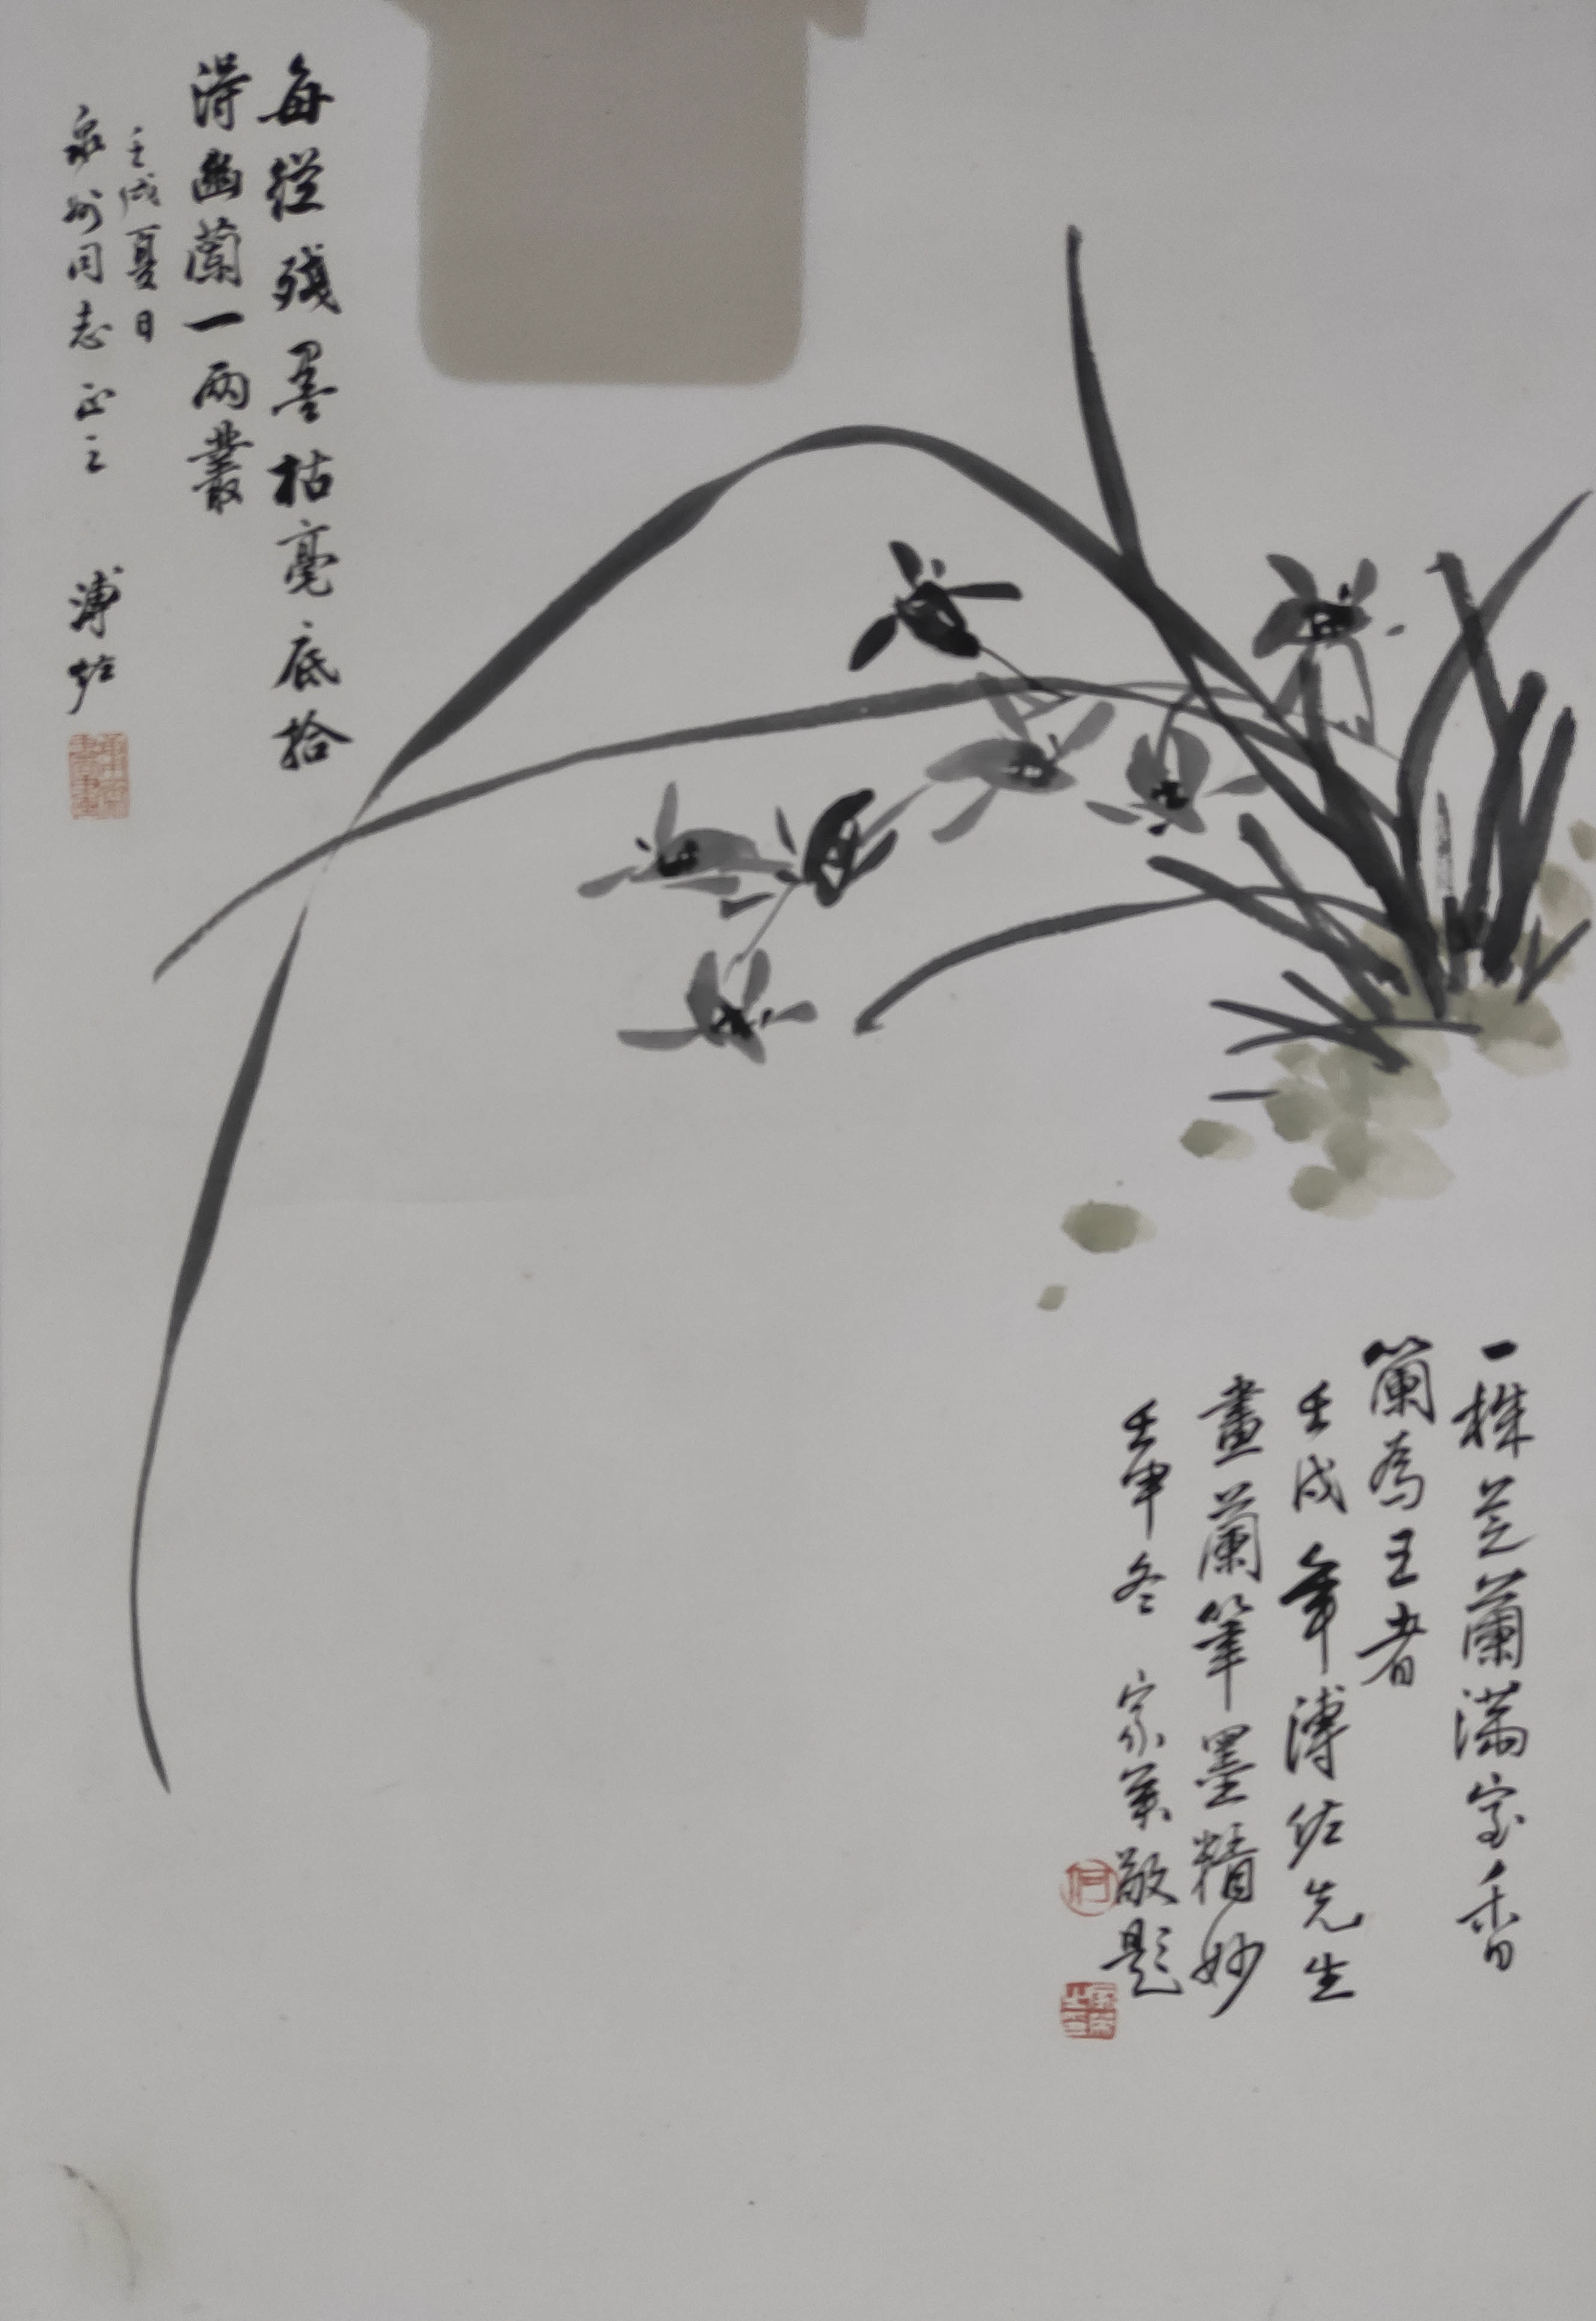 每從殘墨枯毫底拾
得幽蘭一兩叢
壬戌夏日
泉州同志正之 溥佐
一株芝蘭滿室香
蘭為王者
壬戌年溥佐先生
畫蘭筆墨精妙
壬申冬 宗萬敬題